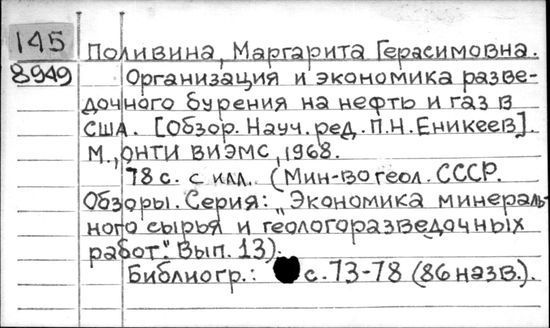 145
8949
Поливина, Маргарита Герасимовна.
Организация и экономика разве-
дочного бурения на нефть и газ в
США. [Обзор. Науч. ред. П.Н. Еникеев].
М., ОНТИ ВИЭМС, 1968.
78 с. с илл. (Мин-во геол. СССР.
Обзоры. Серия: "Экономика минераль-
ного сырья и геологоразведочных
работ". Вып. 13).
Библиогр.: с. 73-78 (86 назв.).